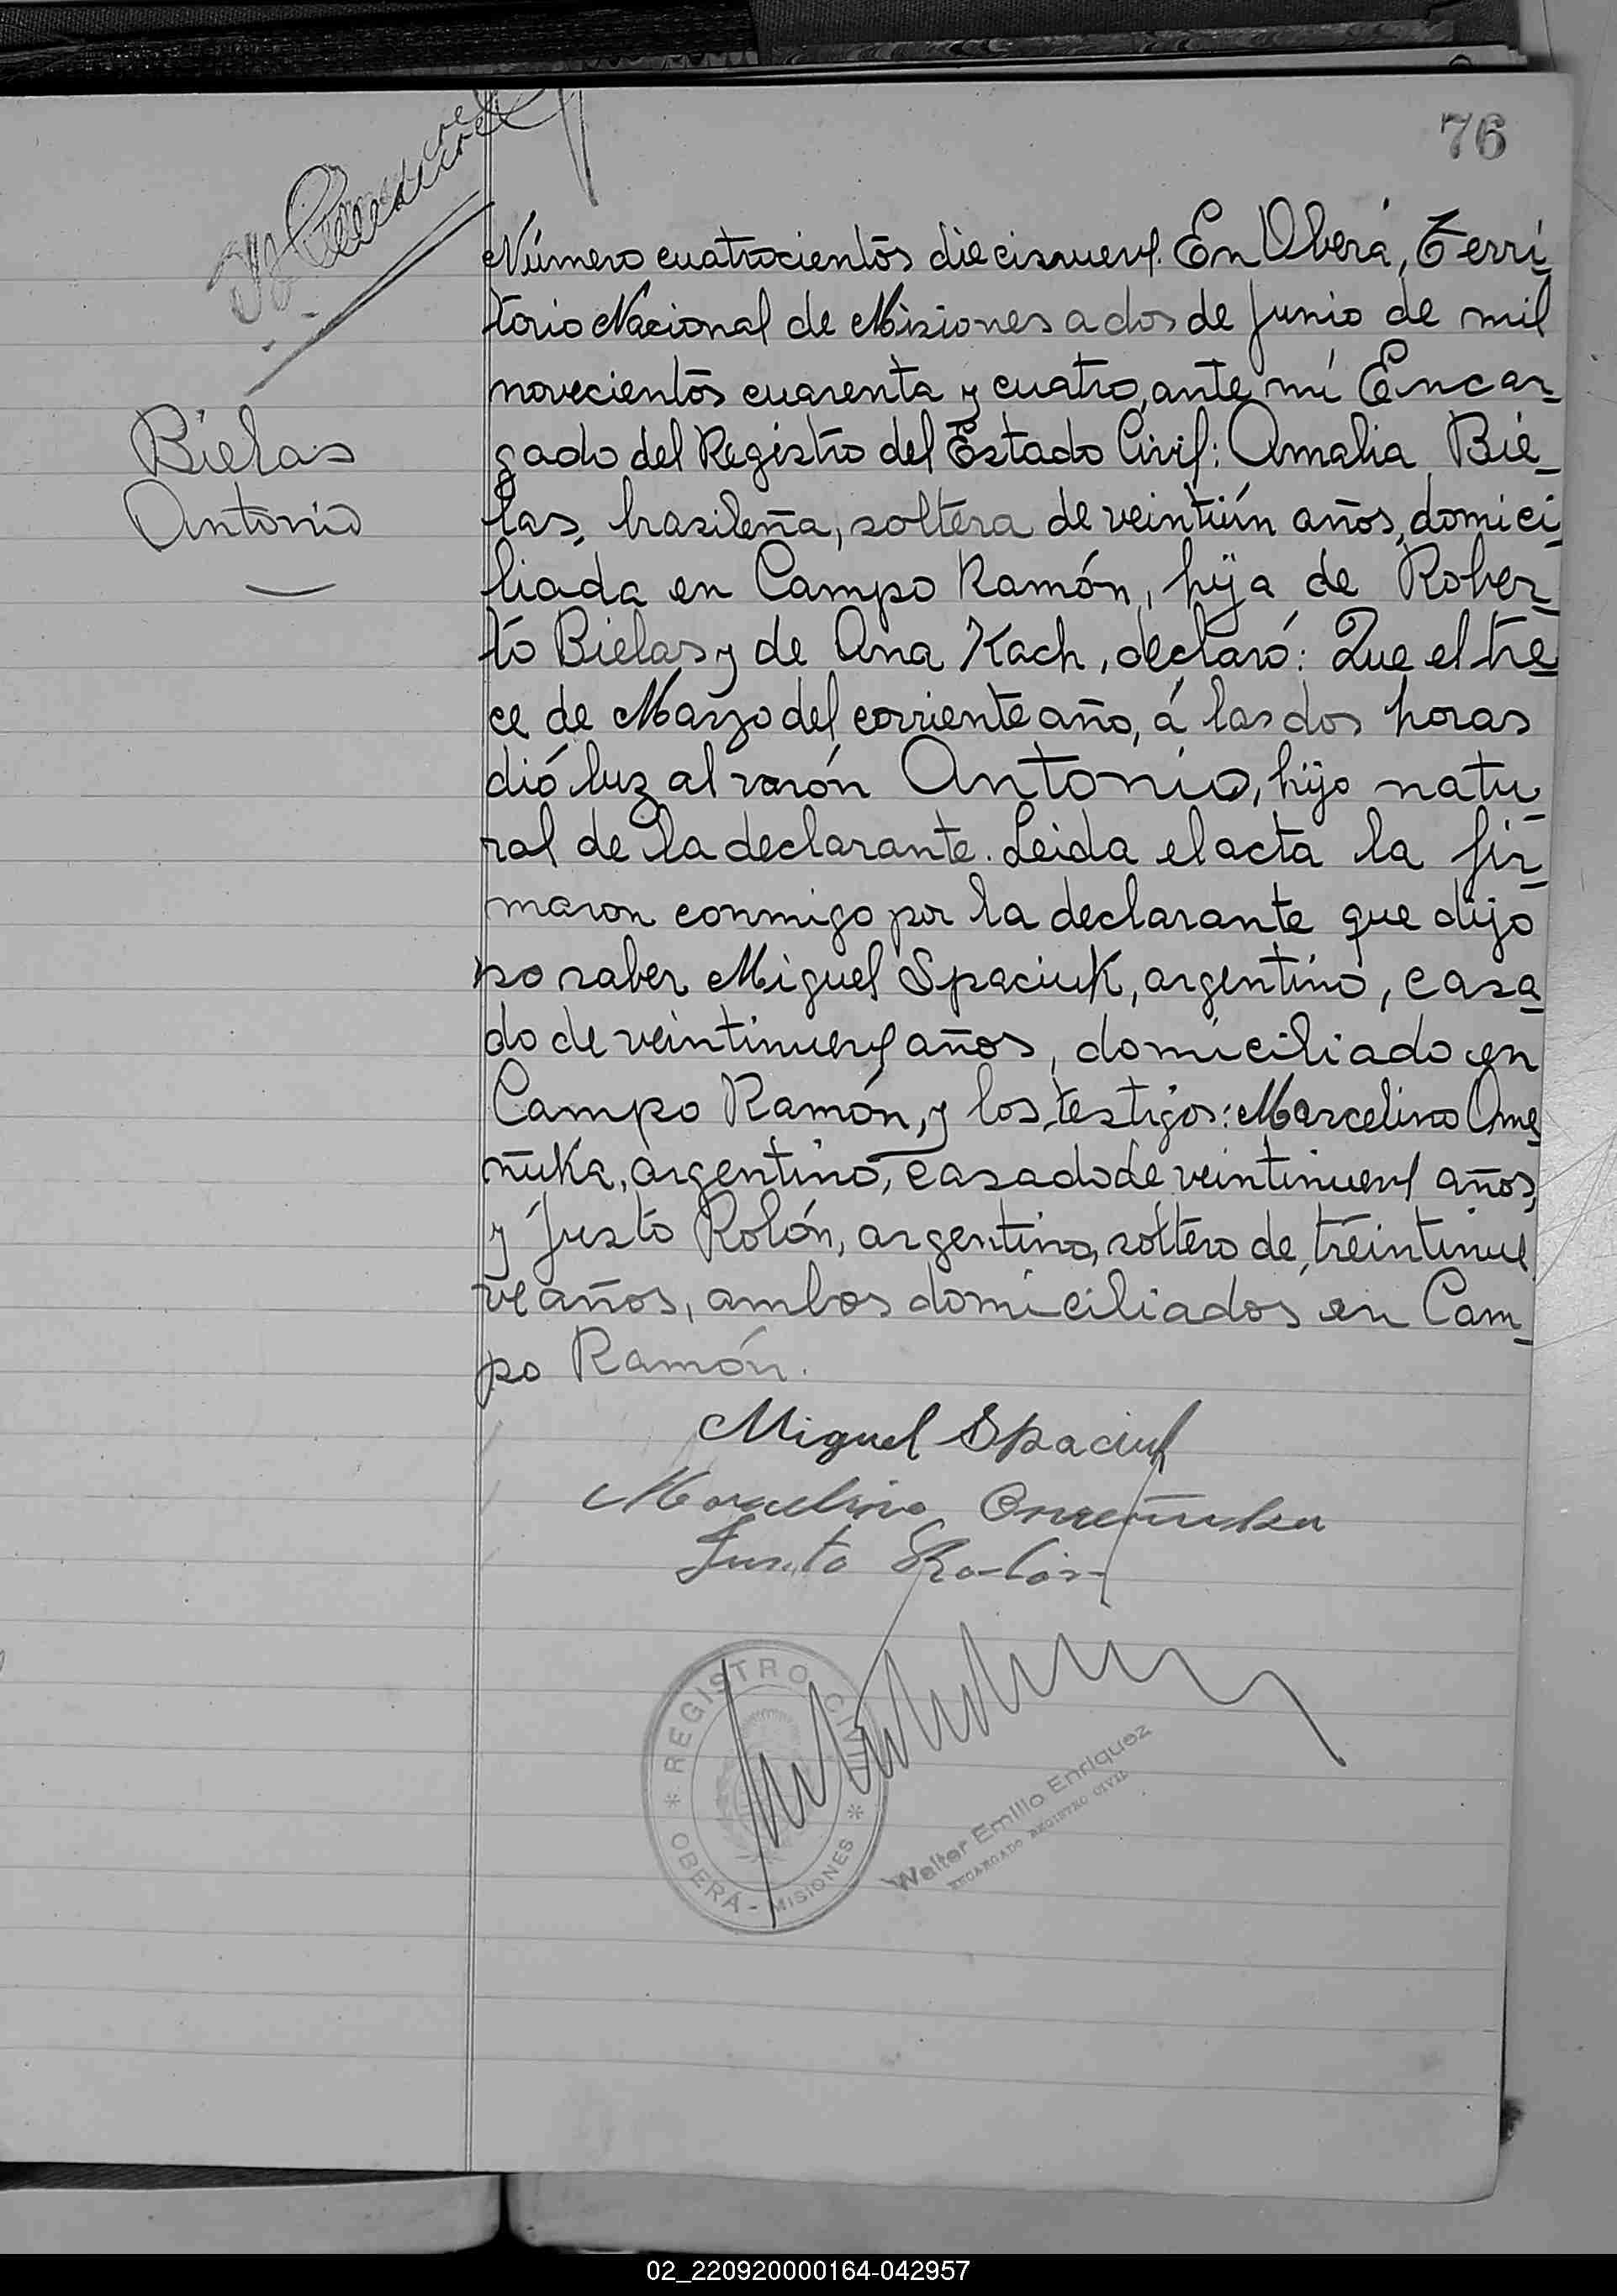 76
Número cuatrocientos diecisnueve. En Oberá, Terri-
torio Nacional de Misiones a dos de Junio de mil
novecientos cuarenta y cuatro, ante mí Encar-
gado del Registro del Estado Civil: Amalia Bie-
las, brasileña, soltera de veintiún años, domici-
liada en Campo Ramón, hija de Rober-
to Bielas y de Ana Kach, declaró: Que el tre
ce de Marzo del corriente año, á las dos horas
dió luz al varón Antonio, hijo natu-
ral de la declarante. Leida el acta la fir-
maron conmigo por la declarante que dijo
no saber Miguel Spaciuk, argentino, casa-
do de veintinueve años, domiciliado en
Campo Ramón, y los testigos: Marcelino Ome-
ñuka, argentino, casado de veintinueve años,
y Justo Rolón, argentino, soltero de treintinue
ve años, ambos domiciliados en Cam-
po Ramón.
Bielas
Antonio
Miguel Spaciuk
Marcelino Omeñuka
Justo Rolón
REGISTRO CIVIL
OBERÁ - MISIONES
Walter Emilio Enriquez
ENCARGADO REGISTRO CIVIL
02_220920000164-042957